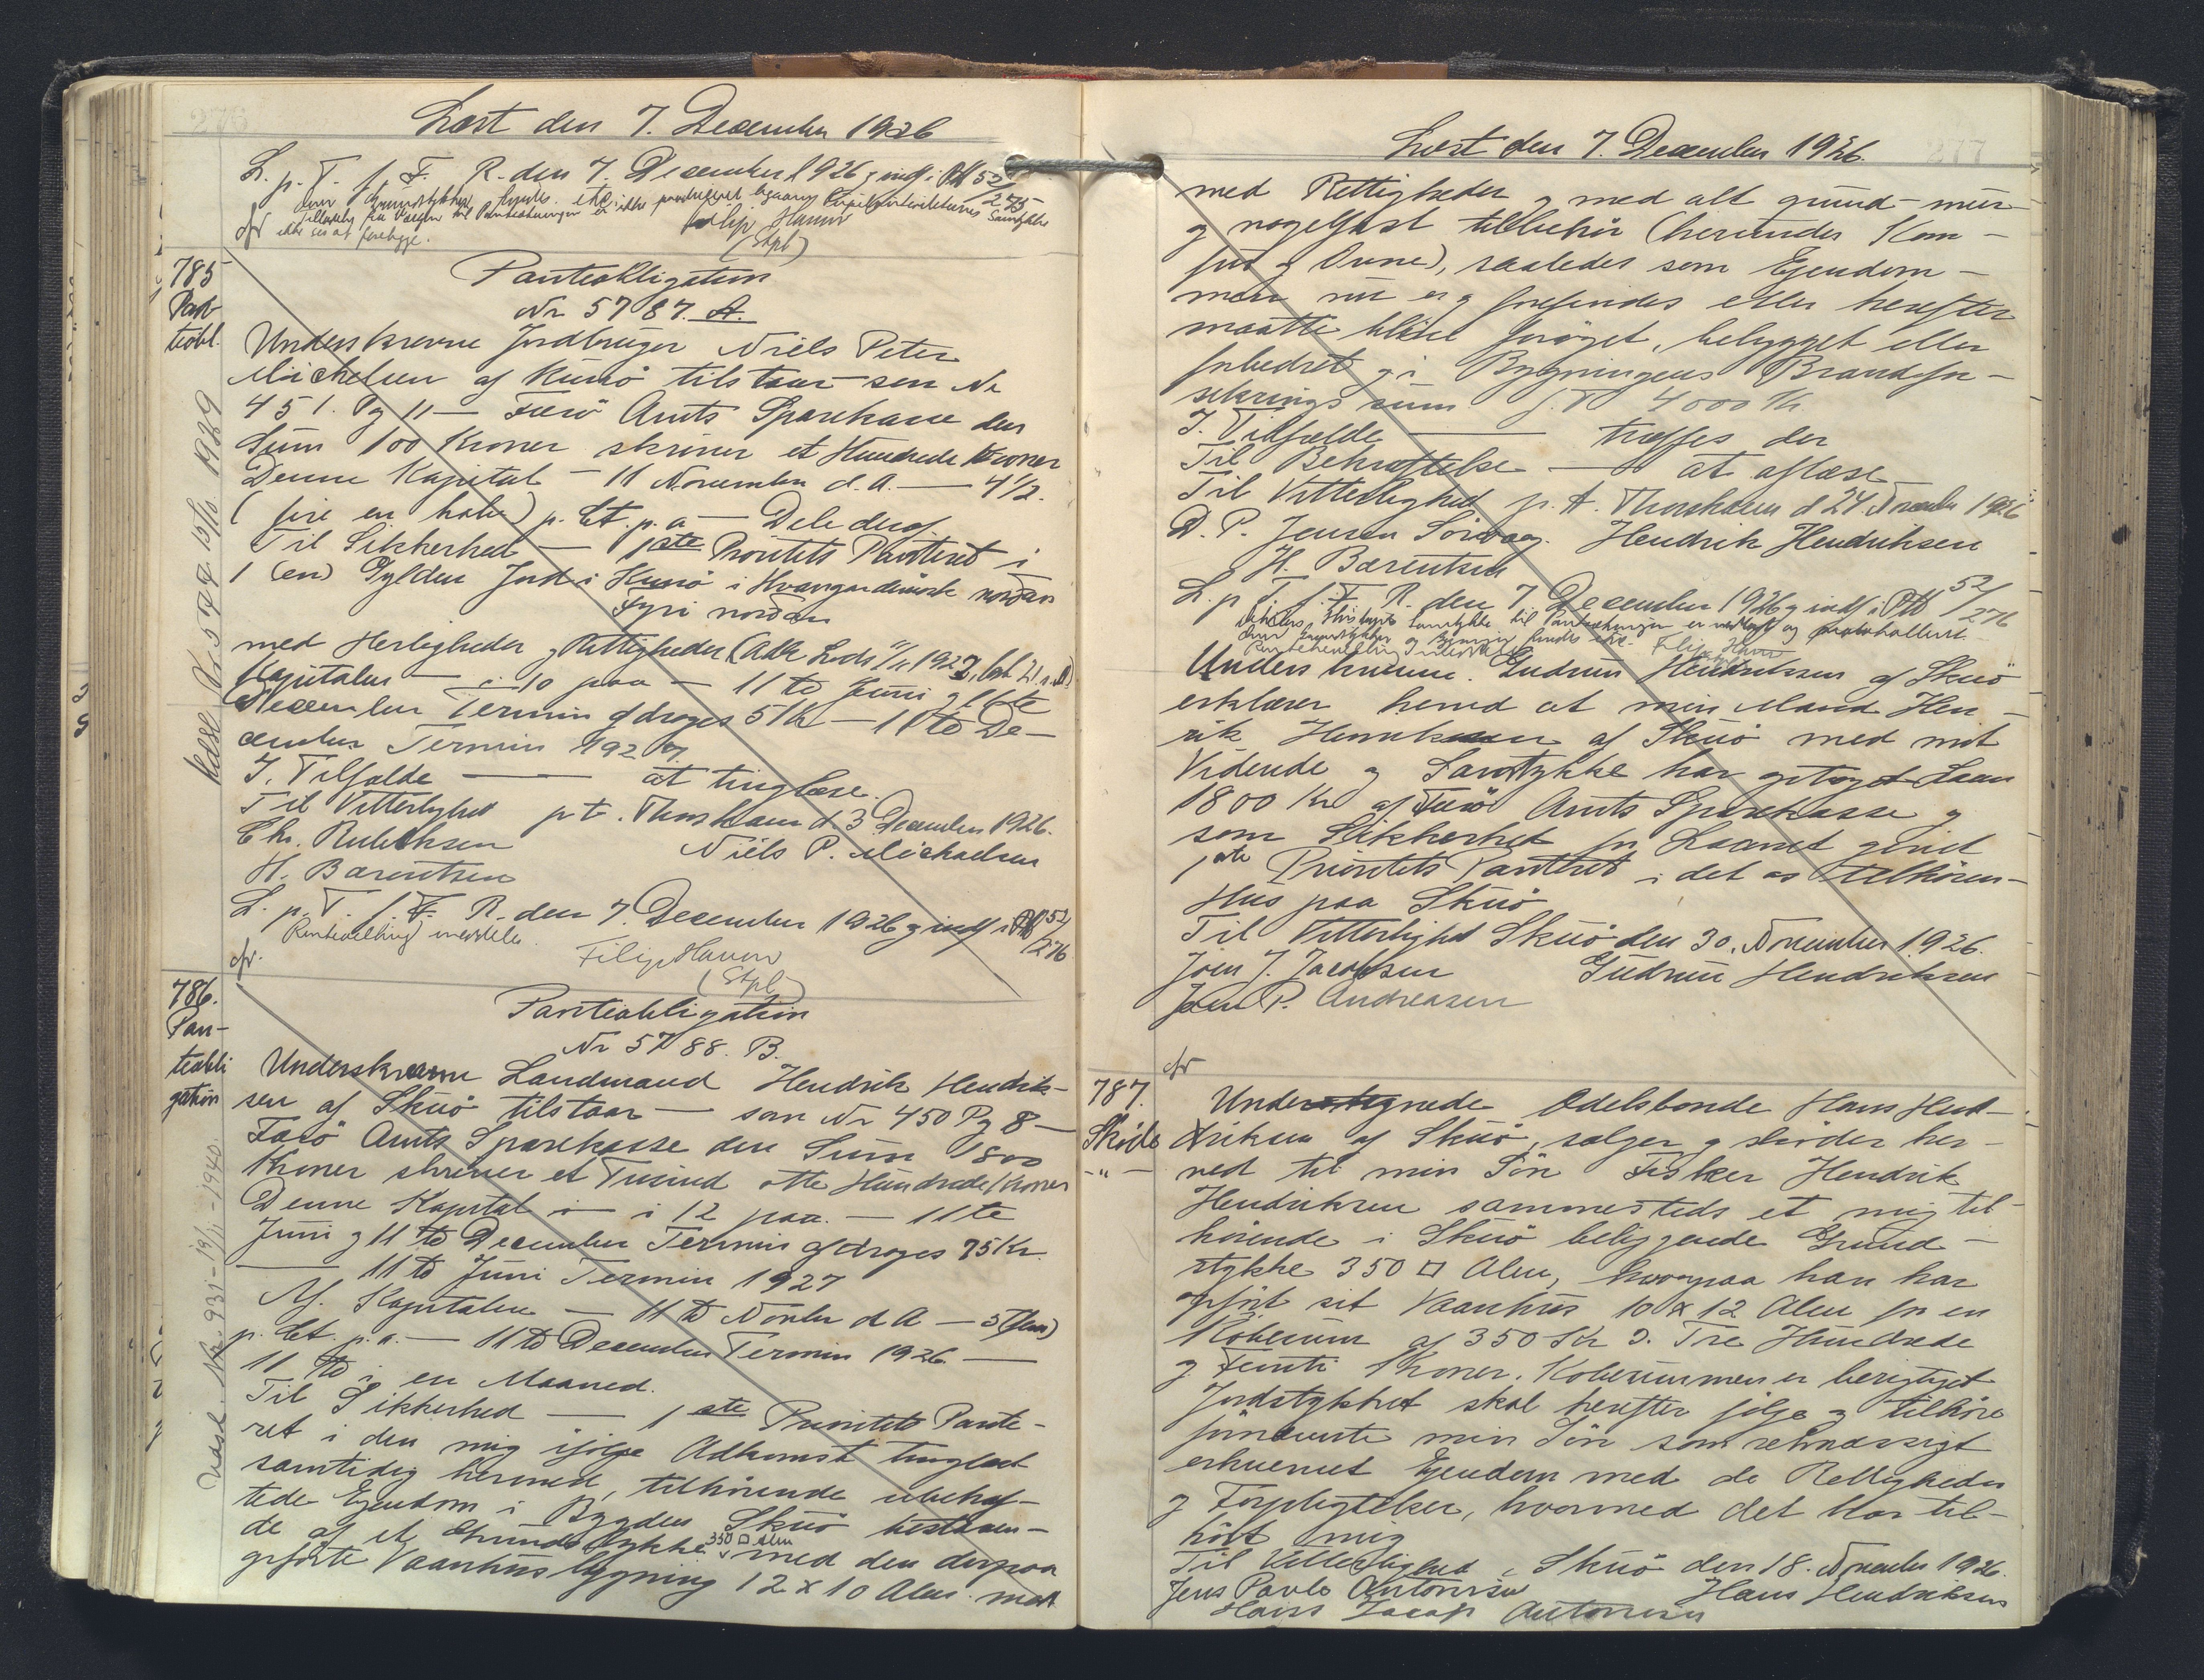 Læst den 7. December 1926
L. p. T. f. F. R. den 7. December 1926 g indf i Ptl 52/275
Filip Hamm
(Stpl)
cfr
785
Pan-
teobl.
Panteobligation
Nr 5787. A.
Underskrevne Jordbruger Niels Peter
Michelsen af Kunø tilstaar som Nr
451. Pg 11 — Færø Amts Sparekasse den
Sum 100 Kroner skriver et Hundrede Kroner
Denne Kapital — 11 November d. A. — 4½.
(fire en halv) p. Ct. p. a — Dele deraf
Til Sikkerhed — 1ste Prioritets Panteret i
1 (en) Gylden Jord i Kunø i Hvangardsmørk nordan
Fyri nordan
med Herligheder g Rettigheder
Kapitalen — i 10 paa — 11te Juni g 11te
December Termin afdrages 5 Kr — 11te De-
cember Termin 1927.
I. Tilfælde — at tinglæse.
Til Vitterlighed p t. Thorshavn d. 3 December 1926.
Chr. Rubeksen Niels P. Michaelsen
H. Barentsen
L. p. T. f. F. R. den 7. December 1926 g indf i Ptl 52/276
Rentevilking meddeles.
Filip Hamm
(Stpl)
cfr.
Udsl. Nr. 931 - 19/11 - 1940.
786.
Pan-
teobli
gation
Panteobligation
Nr 5788. B.
Underskrevne Landmand Hendrik Hendrik-
sen af Skuø tilstaar — som Nr 450 Pg 8 —
Færø Amts Sparekasse den Sum 1800
Kroner skriver et Tusind otte Hundrede Kroner
Denne Kapital — i 12 paa. — 11te
Juni g 11te December Termin afdrages 75 Kr
— 11te Juni Termin 1927
Af. Kapitalen — 11te Novbr d A — 5 (fem)
p. Ct. p. a. — 11te December Termin 1926 —
11te i en Maaned.
Til Sikkerhed — 1ste Prioritets Pante-
ret i den mig ifølge Adkomst tinglæst
samtidig hermed, tilhørende ubehæf-
tede Ejendom i Bygden Skuø bestaaen-
de af et Grundstykke 350 □ Alen med den derpaa
opførte Vaanhusbygning 12 x 10 Alen. med
Læst den 7. December 1926.
med Rettigheder g med alt grund- mur-
g nagelfast tilbehør (herunder Kom-
fur g Ovne), saaledes som Ejendom-
men nu er g forefindes eller herefter
maatte blive forøget, bebygget eller
forbedret g i Bygningens Brandfor-
sikringssum f. T. 4000 Kr.
I. Tilfælde — træffes der
Til Bekræftelse — at aflæse
Til Vitterlighed p. t. Thorshavn d 24 November 1926
D. P. Jensen Sørvaag. Hendrik Hendriksen
H. Barentsen
L. p T. f. F. R. den 7 December 1926 g indf i Ptl 52/276
Filip Hamm
Underskrevne Gudrun Hendriksen af Skuø
erklærer herved at min Mand Hen-
rik Henriksen af Skuø med mit
Vidende g Samtykke har optaget Laan
1800 Kr af Færø Amts Sparekasse g
som Sikkerhed for Laanet givet
1ste Prioritets Panteret i det os tilhøren-
Hus paa Skuø
Til Vitterlighed Skuø den 30. November 1926.
Joen J. Jacobsen Gudrun Hendriksen
Joen P. Andreasen
cfr
787.
Skøde
-"-
Undertegnede Odelsbonde Hans Hend-
driksen af Skuø, sælger g skøder her-
ved til min Søn Fisker Hendrik
Hendriksen sammesteds et mig til-
hørende i Skuø beliggende Grund-
stykke 350 □ Alen, hvorpaa han har
opført sit Vaanhus 10 x 12 Alen for en
Købesum af 350 Kr ɔ. Tre Hundrede
g Femti Kroner. Købesummen er berigtiget
Jordstykket skal herefter følge g tilhøre
førnævnte min Søn som retmæssigt
erhvervet Ejendom med de Rettigheder
g Forpligtelser, hvormed det har til-
hørt mig
Til Vitterlighed, Skuø den 18. November 1926.
Jens Pavle Antonisen Hans Hendriksen
Hans Jacop Antonisen